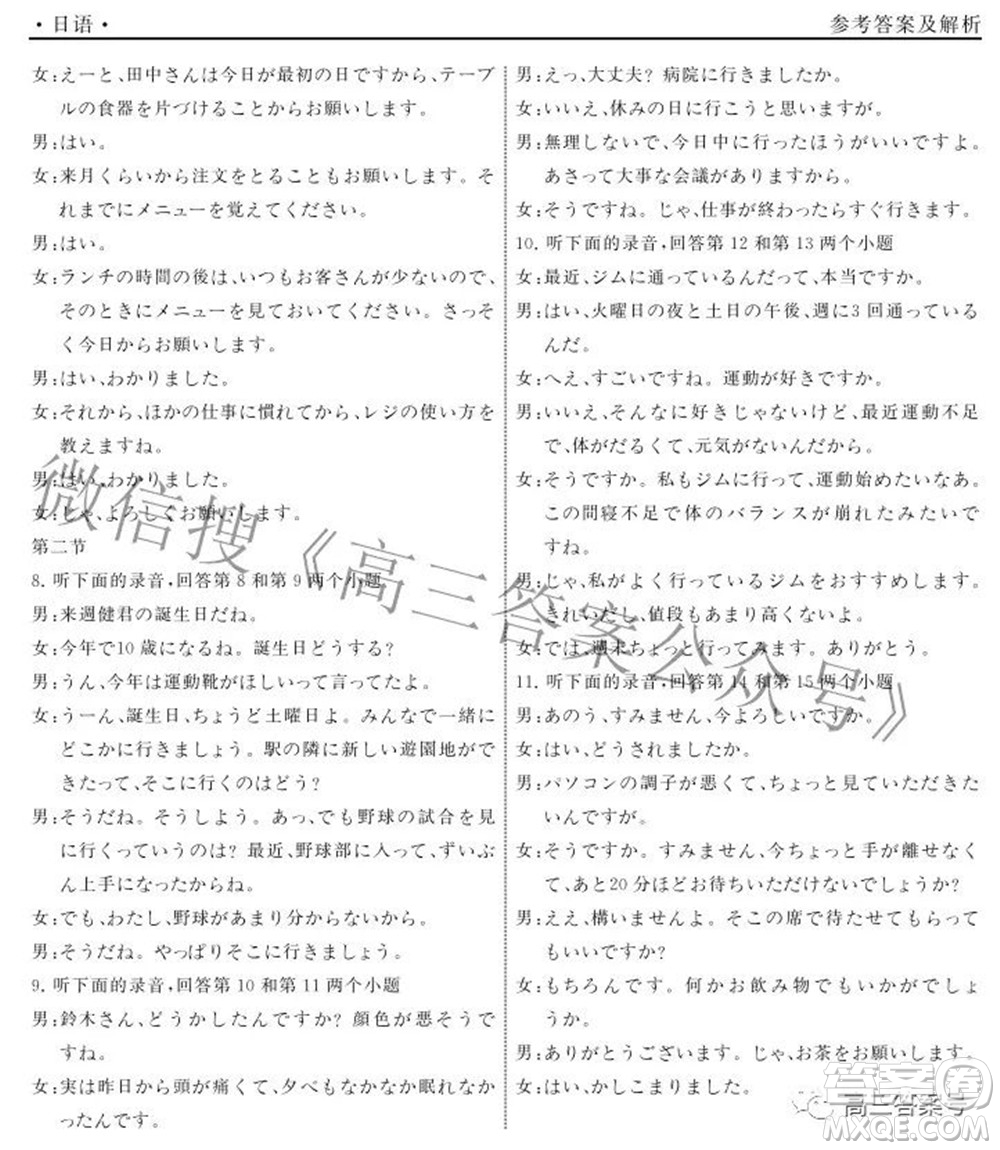 ·日语·
参考答案及解析
女:えーと、田中さんは今日が最初の日ですから、テーブ
ルの食器を片づけることからお願いします。
男:はい。
女:来月くらいから注文をとることもお願いします。そ
れまでにメニューを覚えてください。
男:はい。
女:ランチの時間の後は、いつもお客さんが少ないので、
そのときにメニューを見ておいてください。さっそ
く今日からお願いします。
男:はい、わかりました。
女:それから、ほかの仕事に慣れてから、レジの使い方を
教えますね。
男:はい、わかりました。
女:じゃ、よろしくお願いします。
第二节
8. 听下面的录音,回答第 8 和第 9 两个小题
男:来週健君の誕生日だね。
女:今年で10 歳になるね。誕生日どうする?
男:うん、今年は運動靴がほしいって言ってたよ。
女:うーん、誕生日、ちょうど土曜日よ。みんなで一緒に
どこかに行きましょう。駅の隣に新しい遊園地がで
きたって、そこに行くのはどう?
男:そうだね。そうしよう。あっ、でも野球の試合を見
に行くっていうのは? 最近、野球部に入って、ずいぶ
ん上手になったからね。
女:でも、わたし、野球があまり分からないから。
男:そうだね。やっぱりそこに行きましょう。
9. 听下面的录音,回答第 10 和第 11 两个小题
男:鈴木さん、どうかしたんですか? 顔色が悪そうで
すね。
女:実は昨日から頭が痛くて、夕べもなかなか眠れなか
ったんです。
男:えっ、大丈夫? 病院に行きましたか。
女:いいえ、休みの日に行こうと思いますが。
男:無理しないで、今日中に行ったほうがいいですよ。
あさって大事な会議がありますから。
女:そうですね。じゃ、仕事が終わったらすぐ行きます。
10. 听下面的录音,回答第 12 和第 13 两个小题
女:最近、ジムに通っているんだって、本当ですか。
男:はい、火曜日の夜と土日の午後、週に3 回通っている
んだ。
女:へえ、すごいですね。運動が好きですか。
男:いいえ、そんなに好きじゃないけど、最近運動不足
で、体がだるくて、元気がないんだから。
女:そうですか。私もジムに行って、運動始めたいなあ。
この間寝不足で体のバランスが崩れたみたいで
すね。
男:じゃ、私がよく行っているジムをおすすめします。
きれいだし、値段もあまり高くないよ。
女:では、週末ちょっと行ってみます。ありがとう。
11. 听下面的录音,回答第 14 和第 15 两个小题
男:あのう、すみません、今よろしいですか。
女:はい、どうされましたか。
男:パソコンの調子が悪くて、ちょっと見ていただきた
いんですが。
女:そうですか。すみません、今ちょっと手が離せなく
て、あと20 分ほどお待ちいただけないでしょうか?
男:ええ、構いませんよ。そこの席で待たせてもらって
もいいですか?
女:もちろんです。何かお飲み物でもいかがでしょ
うか。
男:ありがとうございます。じゃ、お茶をお願いします。
女:はい、かしこまりました。
微信搜《高三答案公众号》
高三答案号
答案圈
MXQE.COM